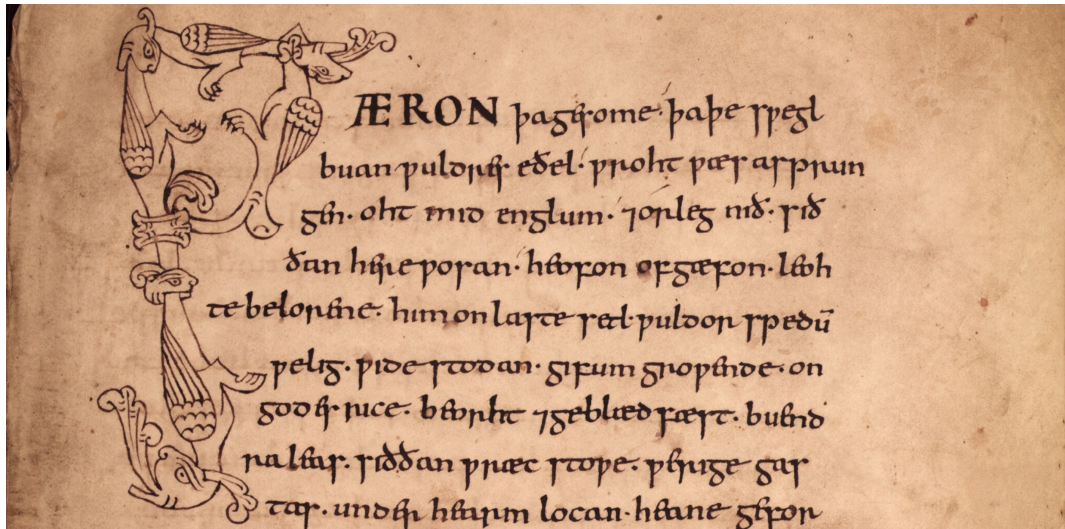 ǷÆRON þagesome· þaþe sƿegl
buan· ƿuldres eðel· ƿroht ƿæs asprun
gen· oht mid englum· ⁊orleg nið· sið
ðan here ƿosan· heofon ofgæfon· leoh
te belorene· him onlaste setl· ƿuldor spedū
ƿelig· ƿide stodan· gifum groƿende· on
godes rice· beorht ⁊geblæd fæst· buend
ra leas· siððan ƿræc stoƿe· ƿerige gas
tas· under hearm locan· heane gefor